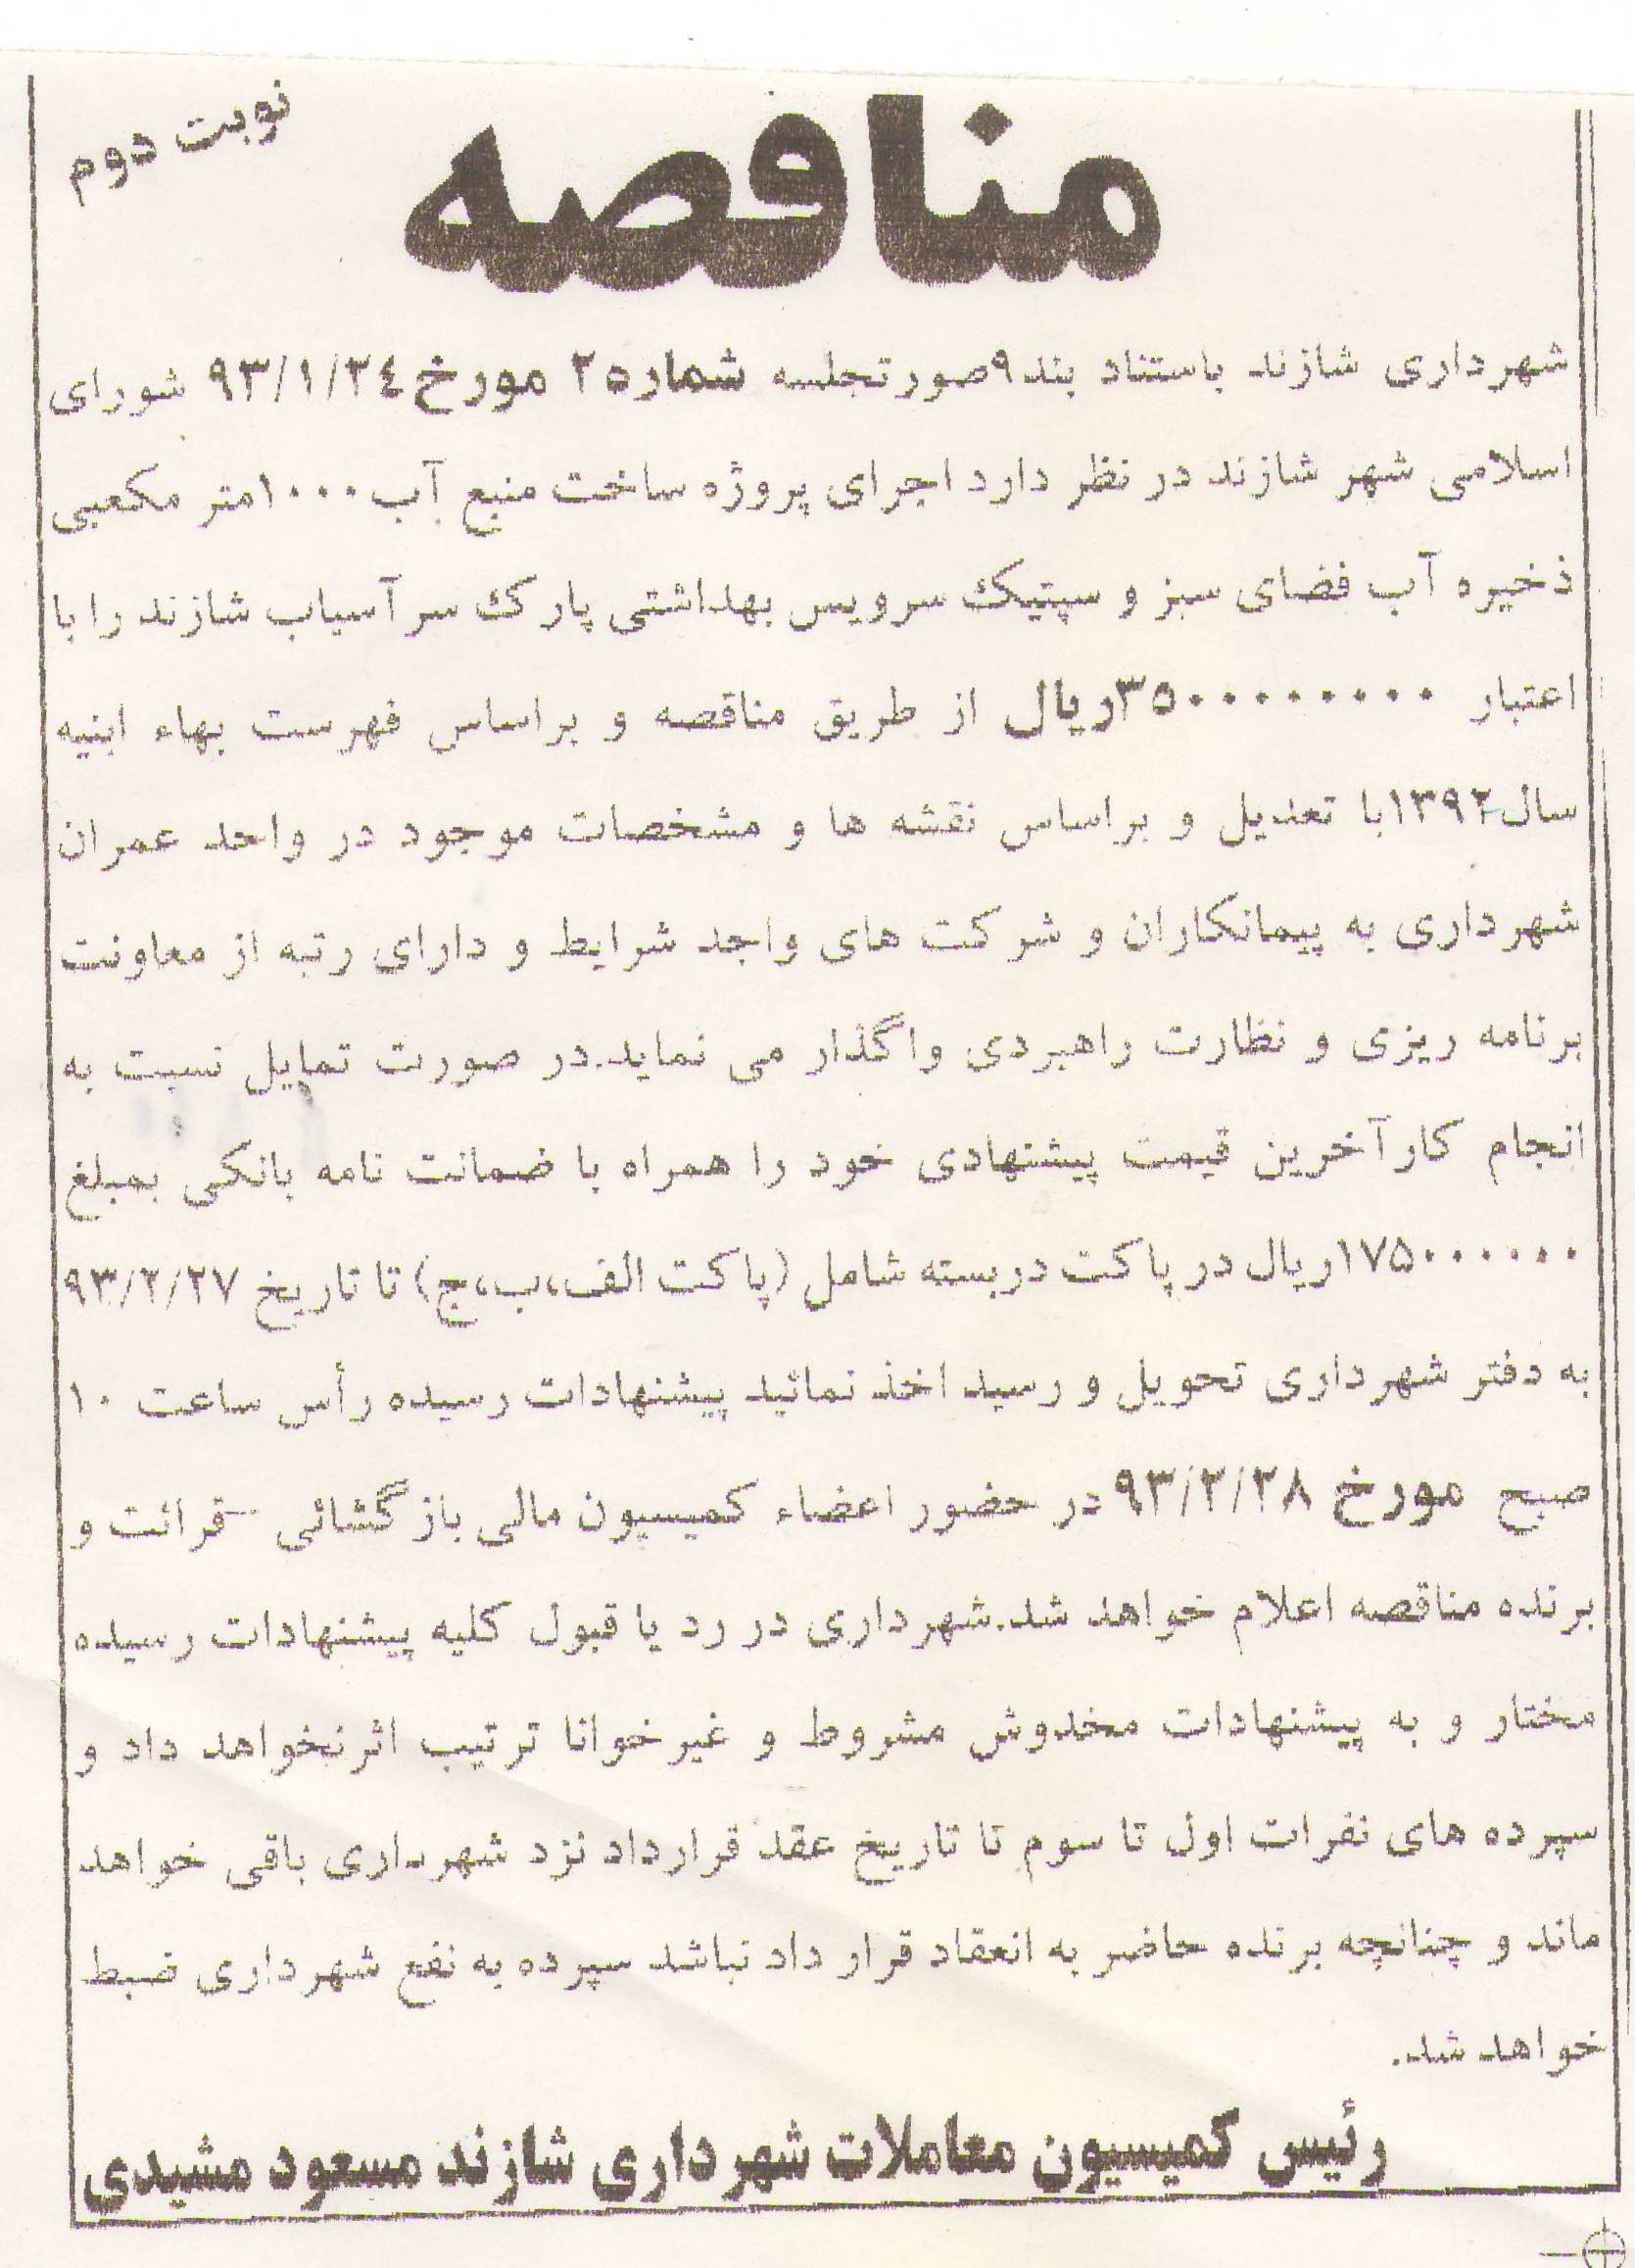 نوبت دوم
مناقصه
شهرداری شازند باستناد بند۹صورتجلسه شماره۲ مورخ ۹۳/۱/۲۴ شورای
اسلامی شهر شازند در نظر دارد اجرای پروژه ساخت منبع آب ۱۰۰۰متر مکعبی
ذخیره آب فضای سبز و سپتیک سرویس بهداشتی پارک سرآسیاب شازند را با
اعتبار ۳۵۰۰۰۰۰۰۰۰ریال از طریق مناقصه و براساس فهرست بهاء ابنیه
سال۱۳۹۲با تعدیل و براساس نقشه ها و مشخصات موجود در واحد عمران
شهرداری به پیمانکاران و شرکت های واجد شرایط و دارای رتبه از معاونت
برنامه ریزی و نظارت راهبردی واگذار می نماید.در صورت تمایل نسبت به
انجام کار آخرین قیمت پیشنهادی خود را همراه با ضمانت نامه بانکی بمبلغ
۱۷۵۰۰۰۰۰۰ریال در پاکت دربسته شامل (پاکت الف،ب،ج) تا تاریخ ۹۳/۲/۲۷
به دفتر شهرداری تحویل و رسید اخذ نمائید پیشنهادات رسیده رأس ساعت ۱۰
صبح مورخ ۹۳/۲/۲۸ در حضور اعضاء کمیسیون مالی بازگشائی – قرائت و
برنده مناقصه اعلام خواهد شد.شهرداری در رد یا قبول کلیه پیشنهادات رسیده
مختار و به پیشنهادات مخدوش مشروط و غیرخوانا ترتیب اثرنخواهد داد و
سپرده های نفرات اول تا سوم تا تاریخ عقد قرارداد نزد شهرداری باقی خواهد
ماند و چنانچه برنده حاضر به انعقاد قرار داد نباشد سپرده به نفع شهرداری ضبط
خواهد شد.
رئیس کمیسیون معاملات شهرداری شازند مسعود مشیدی